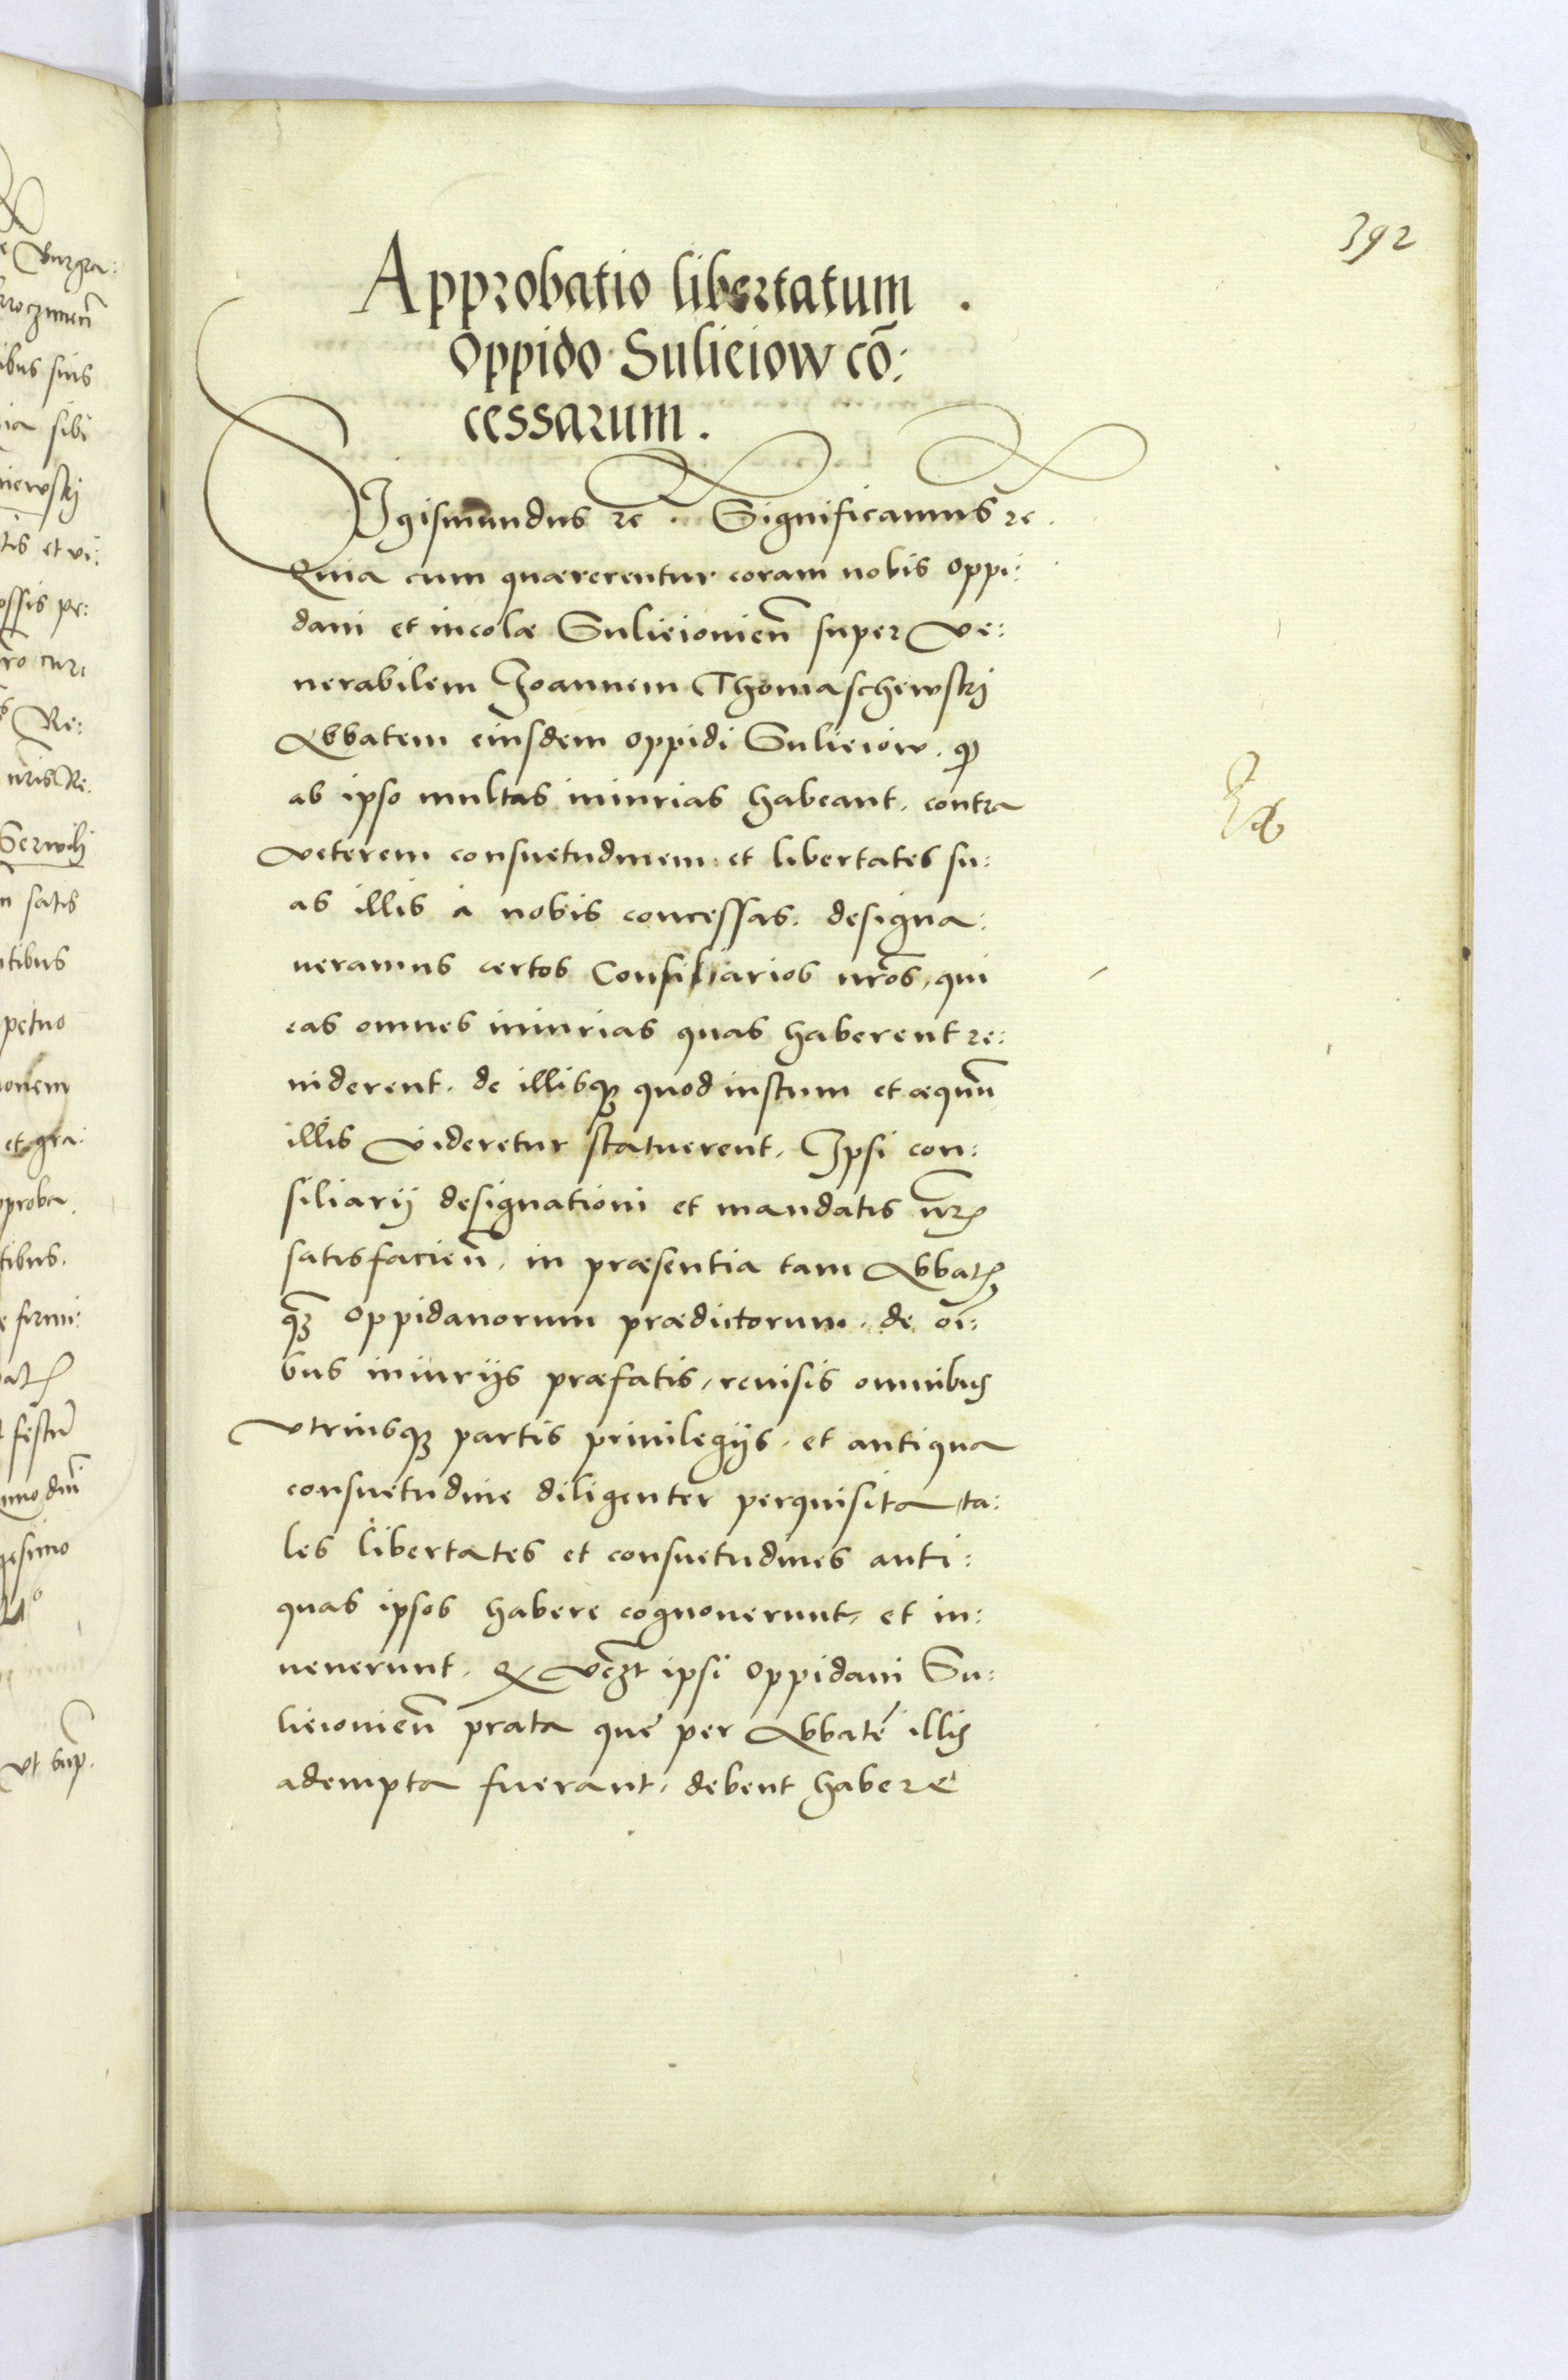 392
Approbatio libertatum.
Oppido Sulieiow cō:
cessarum.
Sigismundus rc. Significamus rc.
Quia cum quærerentur coram nobis oppi:
dani et incolæ Sulieiouien̄ super Ve:
nerabilem Joannem Thomaschewskj
Abbatem eiusdem oppidi Sulieiow. qꝫ
ab ipso multas iniurias habeant. contra
veterem consuetudinem et libertates su:
as illis à nobis concessas. designa:
ueramus certos Consiliarios nr̄os, qui
eas omnes iniurias quas haberent re:
uiderent. de illisqꝫ quod iustum et æquū
illis videretur statuerent. Ipsi con:
siliarij designationi et mandatis nr̄is
satisfacien̄. in præsentia tam Abbatis
qꝫ oppidanorum prædictorum. de oī:
bus iniurijs præfatis, reuisis omnibus
vtriusqꝫ partis priuilegijs. et antiqua
consuetudine diligenter perquisita, ta:
les libertates et consuetudines anti:
quas ipsos habere cognouerunt, et in:
uenerunt. Qꝫ vꝫt ipsi oppidani Su:
lieiouien̄ prata que per Abbatē illis
adempta fuerant, debent habere
Burgra:
ibus suis
sibi
niewskj
tis et vi:
ossis pe:
Re:
Serwilj
satis
tibus
petuo
onem
et gra:
pproba
tibus.
firmi:
gesimo
vt sup.